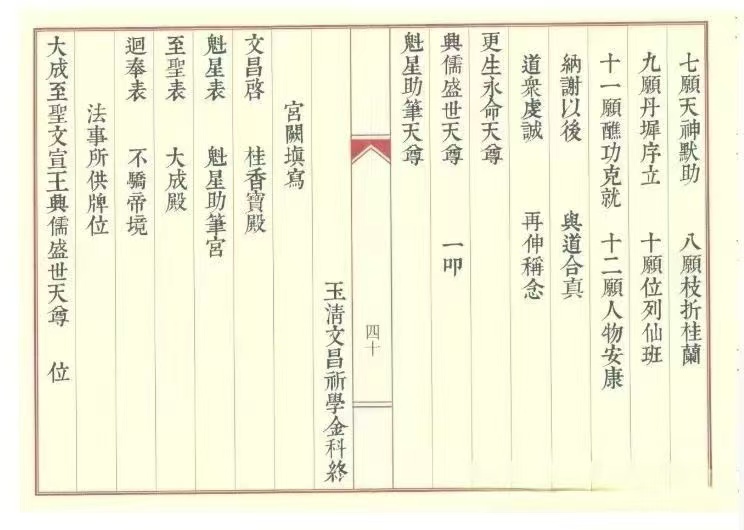 七願天神默助　八願枝折桂蘭
九願丹墀序立　十願位列仙班
十一願醮功克就　十二願人物安康
納謝以後　與道合真
道衆虔誠　再伸稱念
更生永命天尊
興儒盛世天尊　一叩
魁星助筆天尊
四十
玉清文昌祈學金科終
宮闕填寫
文昌啓　桂香寶殿
魁星表　魁星助筆宮
至聖表　大成殿
迴奉表　不驕帝境
法事所供牌位
大成至聖文宣王興儒盛世天尊　位